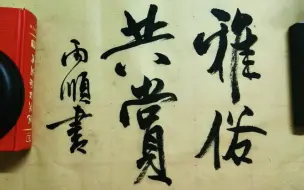 雅俗
共赏
雨順书